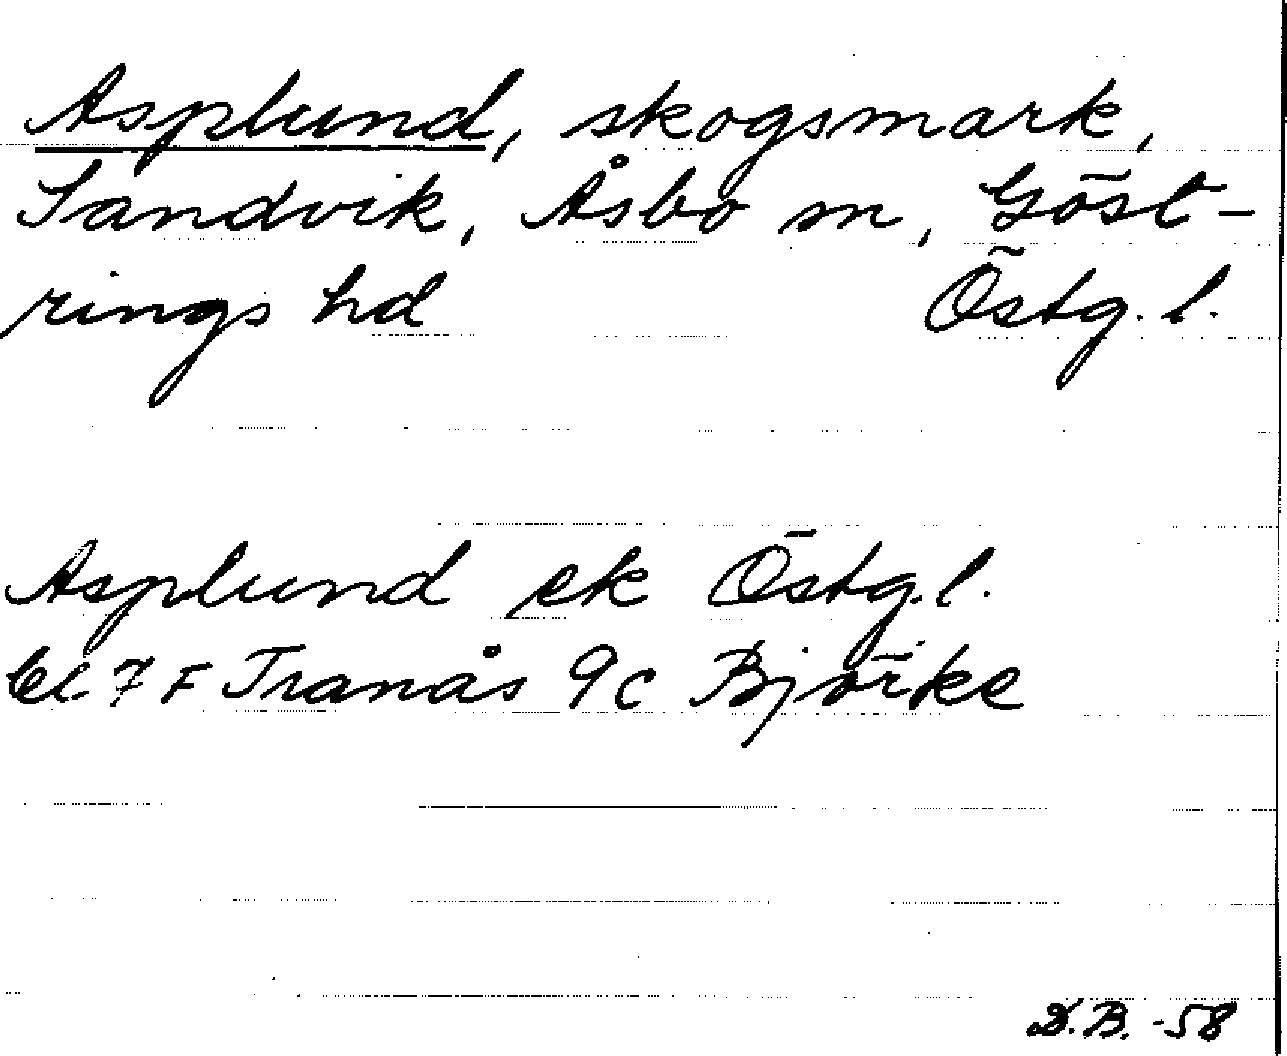 Asplund, skogsmark,
Sandvik, Åsbo sn, Göst-
rings hd Östg. l.
Asplund ek Östg. l.
bl 7 F Tranås 9c Björke
D.B. -58